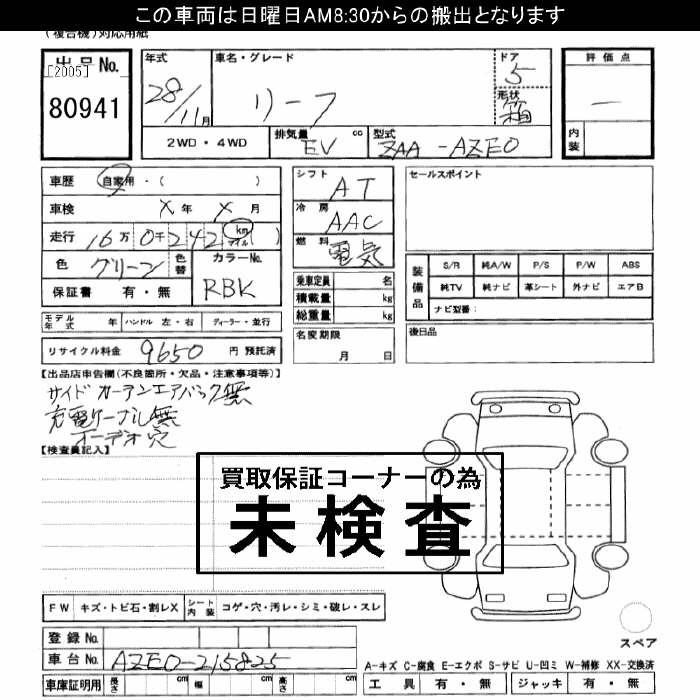 この車両は日曜日AM8:30からの搬出となります
(複合機)対応用紙
出品No.
[2005]
80941
年式
28/11月
車名・グレード
リーフ
ドア
5
形状
箱
評価点
—
内装
2WD・4WD
排気量
EV cc
型式
ZAA-AZE0
車歴 自家用・( )
車検 X年 X月
走行 16万0千242 km マイル ( )
色 グリーン 色替
カラーNo.
RBK
保証書 有・無
モデル年式 年 ハンドル 左・右 ディーラー・並行
リサイクル料金 9650 円 預託済
シフト AT
冷房 AAC
燃料 電気
乗車定員 名
積載量 kg
総重量 kg
名変期限
月 日
セールスポイント
装備品
S/R 純A/W P/S P/W ABS
純TV 純ナビ 革シート 外ナビ エアB
ナビ型番:
後日品
【出品店申告欄(不良箇所・欠品・注意事項等)】
サイド カーテンエアバック無
充電ケーブル無
オーデオ穴
【検査員記入】
買取保証コーナーの為
未検査
FW キズ・トビ石・割レX シート内装 コゲ・穴・汚レ・シミ・破レ・スレ
登録No.
車台No. AZE0-215825
車庫証明用 長さ cm 幅 cm 高さ cm
スペア
A-キズ C-腐食 E-エクボ S-サビ U-凹ミ W-補修 XX-交換済
工具 有・無 ジャッキ 有・無